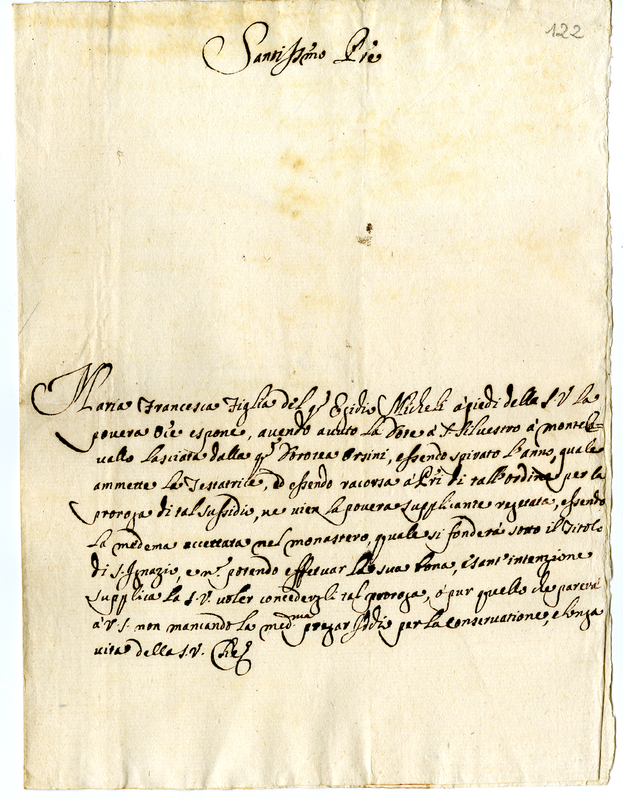 122
Santissimo Pre
Maria Francesca Figlia del q. Egidio Micheli à piedi della S. V. la
povera Ore espone, avendo auuto la Dote à S. Silvestro à monte Ca=
vallo lasciata dalla q. Dorotea Orsini, essendo spirato l'anno, quale
ammette la Testatrice, ed essendo racorsa à PPri di tall'ordine per la
proroga di tal sussidio, ne vien la povera supplicante regetata, essendo
la medema accettata nel monastero, quale si fonderà sotto il Titolo
di S. Ignazio, e n. potendo effettuar la sua bona, è sant'intenzione
supplica la S. V. voler concedergli tal proroga, ò pur quello che parerà
à V. S. non mancando la med.ma pregar Iddio per la conservatione, e longa
vita della S. V. Che